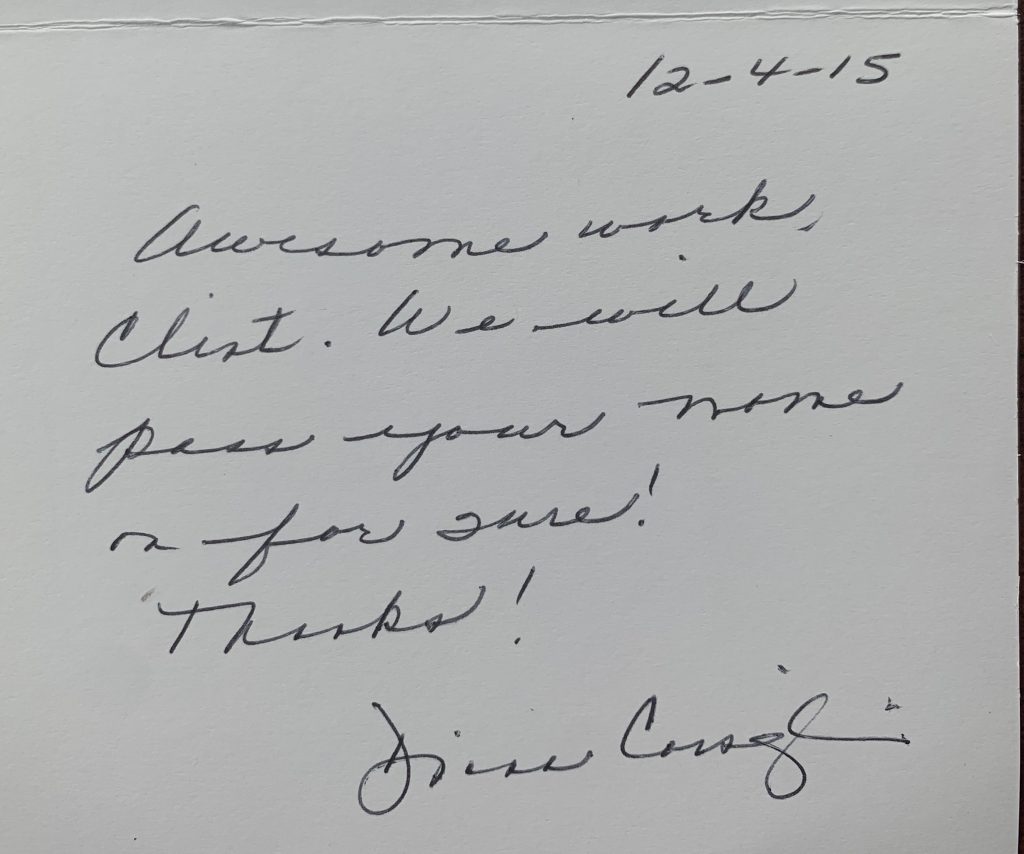 12-4-15
Awesome work,
Clint. We will
pass your name
on for sure!
Thanks!
Diana